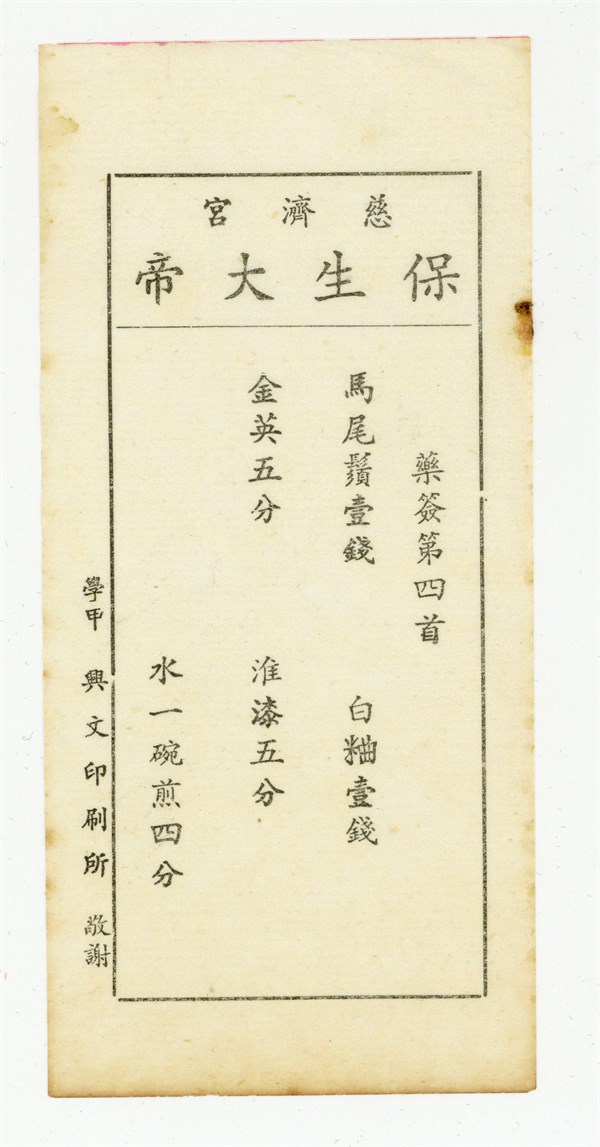 慈濟宮
保生大帝
藥簽第四首
馬尾鬚壹錢 白粬壹錢
金英五分 淮漆五分
水一碗煎四分
學甲 興文印刷所 敬謝